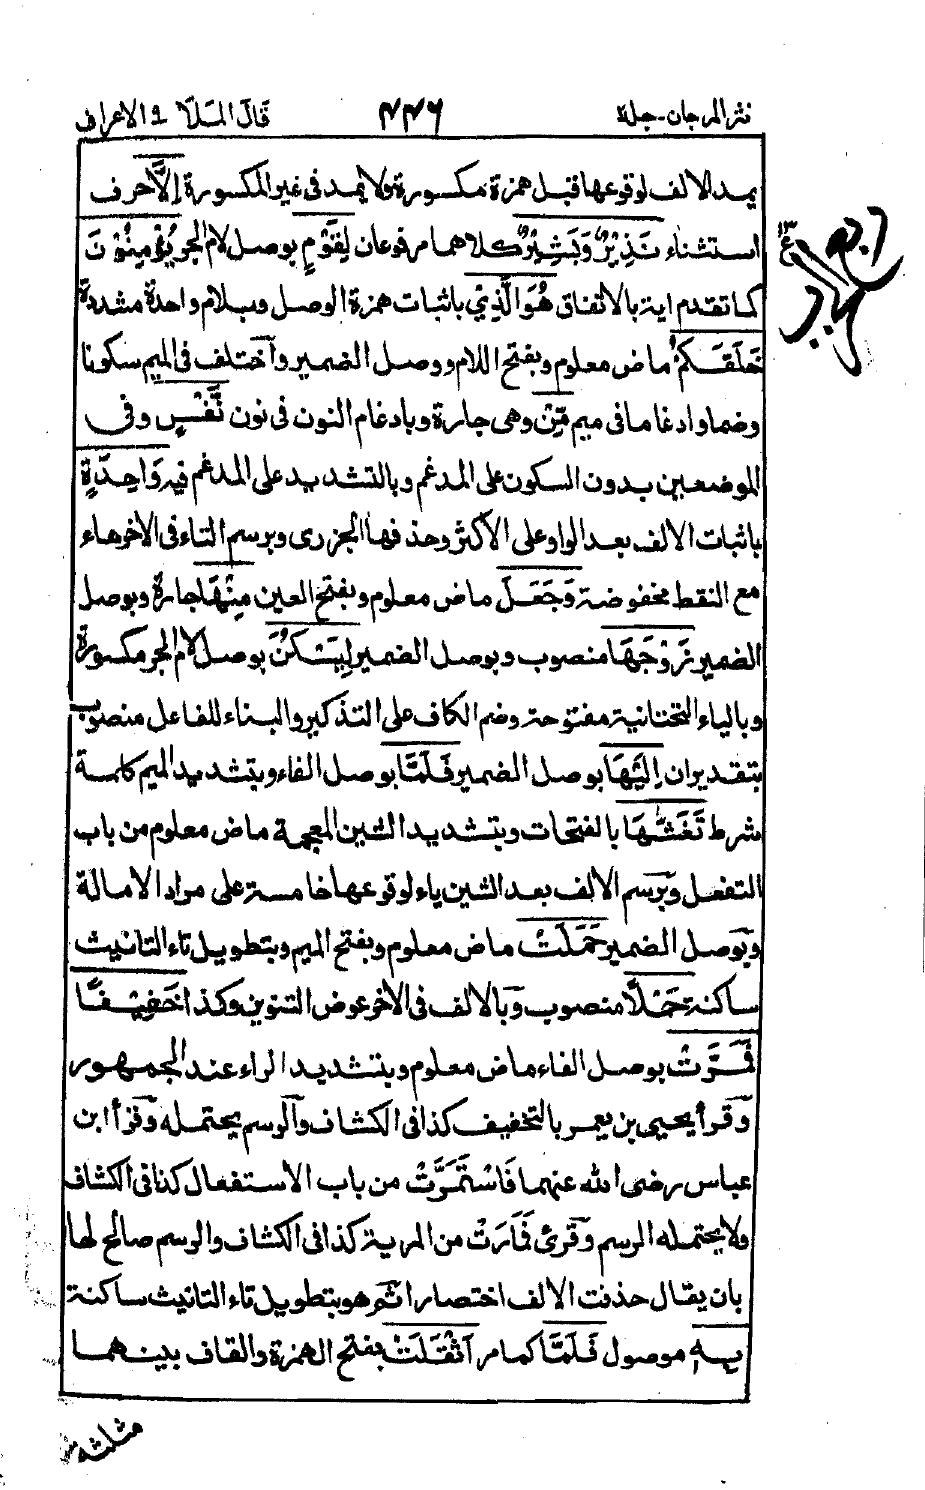 نثر المرجان - جلد٢ ٤٤٦ قال الملأ ٩ الاعراف
يمد الالف لوقوعها قبل همزة مكسورة ولا يمد فى غير المكسورة اِلَّا حرف
استثناء نَذِيْرٌ وَّبَشِيْرٌ كلاهما مرفوعان لِقَوْمٍ بوصل لام الجر يُؤْمِنُوْنَ
كما تقدم اية بالاتفاق هُوَ الَّذِيْ باثبات همزة الوصل وبلام واحدة مشددة
خَلَقَكُمْ ماض معلوم وبفتح اللام ووصل الضمير واختلف فى الميم سكونا
وضما وادغاما فى ميم مِّنْ وهى جارة وبادغام النون فى نون نَّفْسٍ وفى
الموضعين بدون السكون على المدغم وبالتشديد على المدغم فيه وَاحِدَةٍ
باثبات الالف بعد الواو على الاكثر وحذفها الجزرى وبرسم التاء فى الاخر هاء
مع النقط مخفوضة وَجَعَلَ ماض معلوم وبفتح العين مِنْهَا جارة وبوصل
الضمير زَوْجَهَا منصوب وبوصل الضمير لِيَسْكُنَ بوصل لام الجر مكسورة
وبالياء التحتانية مفتوحة وضم الكاف على التذكير والبناء للفاعل منصوب
بتقدير ان اِلَيْهَا بوصل الضمير فَلَمَّا بوصل الفاء وبتشديد الميم كلمة
شرط تَغَشّٰهَا بالفتحات وبتشديد الشين المعجمة ماض معلوم من باب
التفعل وبرسم الالف بعد الشين ياء لوقوعها خامسة على مراد الامالة
وبوصل الضمير حَمَلَتْ ماض معلوم وبفتح الميم وبتطويل تاء التانيث
ساكنة حَمْلًا منصوب وبالالف فى الاخر عوض التنوين وكذا خَفِيْفًا
فَمَرَّتْ بوصل الفاء ماض معلوم وبتشديد الراء عند الجمهور
وقرأ يحيى بن يعمر بالتخفيف كذا فى الكشاف والرسم يحتمله وقرأ ابن
عباس رضى الله عنهما فَاسْتَمَرَّتْ من باب الاستفعال كذا فى الكشاف
ولا يحتمله الرسم وقرئ فَمَارَتْ من المرية كذا فى الكشاف والرسم صالح لها
بان يقال حذفت الالف اختصارا ثم هو بتطويل تاء التانيث ساكنة
بِهٖ موصول فَلَمَّا كما مر اَثْقَلَتْ بفتح الهمزة والقاف بينهما
مثلثة